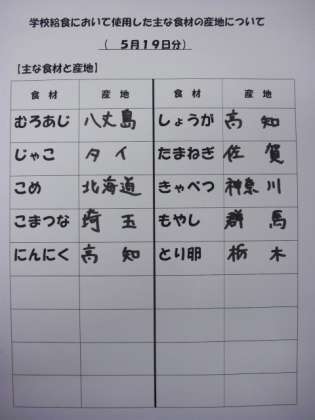 学校給食において使用した主な食材の産地について
( 5月19日分)
【主な食材と産地】
食材 産地 食材 産地
むろあじ 八丈島 しょうが 高知
じゃこ タイ たまねぎ 佐賀
こめ 北海道 きゃべつ 神奈川
こまつな 埼玉 もやし 群馬
にんにく 高知 とり卵 栃木